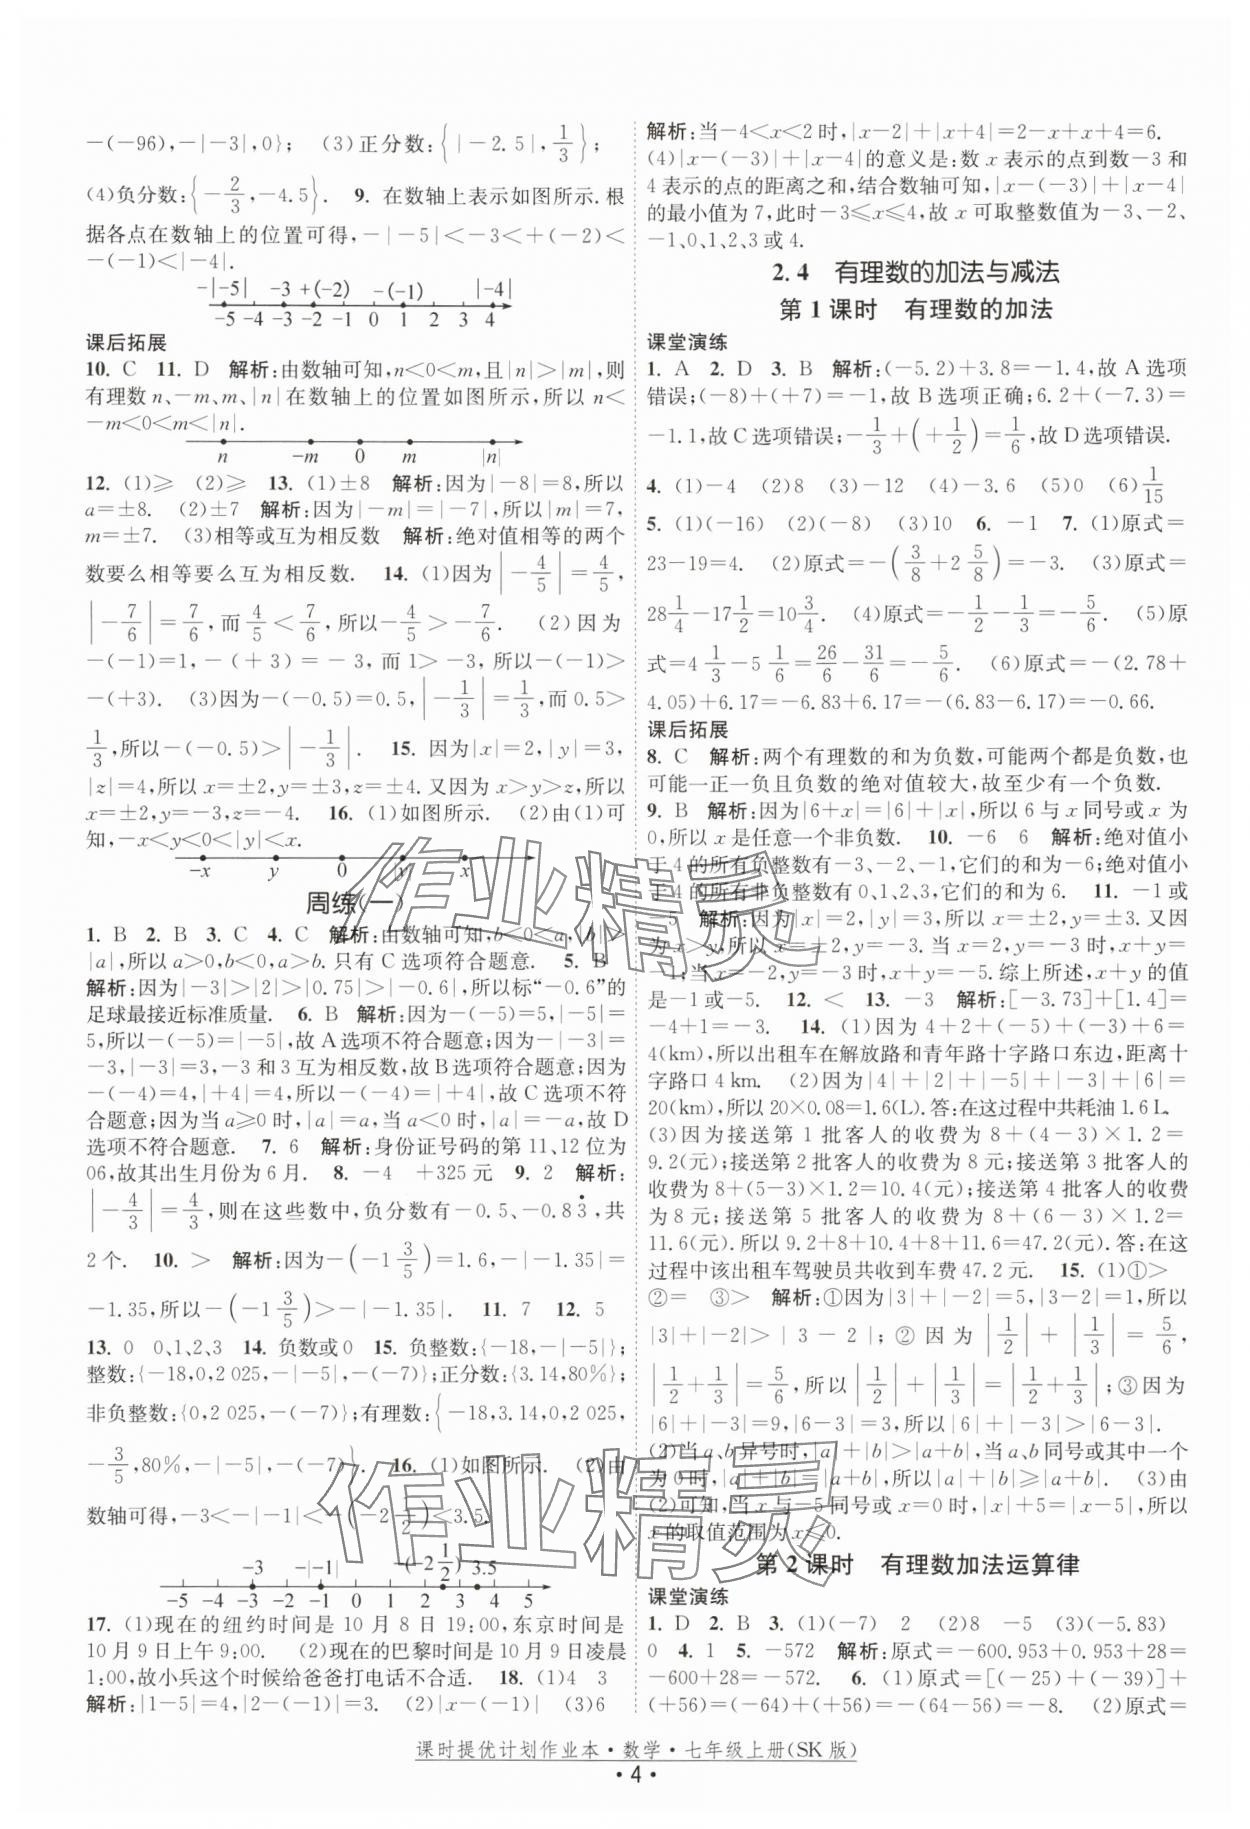 -(-96),-|-3|,0}; (3)正分数:{|-2.5|,1/3};
(4)负分数:{-2/3,-4.5}. 9. 在数轴上表示如图所示.根
据各点在数轴上的位置可得,-|-5|<-3<+(-2)<
-(-1)<|-4|.
-|-5| -3 +(-2) -(-1) |-4|
-5 -4 -3 -2 -1 0 1 2 3 4
课后拓展
10. C 11. D 解析:由数轴可知,n<0<m,且|n|>|m|,则
有理数n、-m、m、|n|在数轴上的位置如图所示,所以n<
-m<0<m<|n|.
n -m 0 m |n|
12. (1)≥ (2)≥ 13. (1)±8 解析:因为|-8|=8,所以
a=±8. (2)±7 解析:因为|-m|=|-7|,所以|m|=7,
m=±7. (3)相等或互为相反数 解析:绝对值相等的两个
数要么相等要么互为相反数. 14. (1)因为|-4/5|=4/5,
|-7/6|=7/6,而4/5<7/6,所以-4/5>-7/6. (2)因为
-(-1)=1,-(+3)=-3,而1>-3,所以-(-1)>
-(+3). (3)因为-(-0.5)=0.5,|-1/3|=1/3,而0.5>
1/3,所以-(-0.5)>|-1/3|. 15. 因为|x|=2,|y|=3,
|z|=4,所以x=±2,y=±3,z=±4.又因为x>y>z,所以
x=±2,y=-3,z=-4. 16. (1)如图所示. (2)由(1)可
知,-x<y<0<|y|<x.
-x y 0 |y| x
周练(一)
1. B 2. B 3. C 4. C 解析:由数轴可知,b<0<a,|b|>
|a|,所以a>0,b<0,a>b.只有C选项符合题意. 5. B
解析:因为|-3|>|2|>|0.75|>|-0.6|,所以标“-0.6”的
足球最接近标准质量. 6. B 解析:因为-(-5)=5,|-5|=
5,所以-(-5)=|-5|,故A选项不符合题意;因为-|-3|=
-3,|-3|=3,-3和3互为相反数,故B选项符合题意;因为
-(-4)=4,|+4|=4,所以-(-4)=|+4|,故C选项不符
合题意;因为当a≥0时,|a|=a,当a<0时,|a|=-a,故D
选项不符合题意. 7. 6 解析:身份证号码的第11、12位为
06,故其出生月份为6月. 8. -4 +325元 9. 2 解析:
|-4/3|=4/3,则在这些数中,负分数有-0.5、-0.83̇,共
2个. 10. > 解析:因为-(-1 3/5)=1.6,-|-1.35|=
-1.35,所以-(-1 3/5)>-|-1.35|. 11. 7 12. 5
13. 0 0、1、2、3 14. 负数或0 15. 负整数:{-18,-|-5|};
整数:{-18,0,2 025,-|-5|,-(-7)};正分数:{3.14,80%};
非负整数:{0,2 025,-(-7)};有理数:{-18,3.14,0,2 025,
-3/5,80%,-|-5|,-(-7)}. 16. (1)如图所示. (2)由
数轴可得,-3<-|-1|<-(-2 1/2)<3.5.
-3 -|-1| -(-2 1/2) 3.5
-5 -4 -3 -2 -1 0 1 2 3 4 5
17. (1)现在的纽约时间是10月8日19:00,东京时间是
10月9日上午9:00. (2)现在的巴黎时间是10月9日凌晨
1:00,故小兵这个时候给爸爸打电话不合适. 18. (1)4 3
解析:|1-5|=4,|2-(-1)|=3. (2)|x-(-1)| (3)6
解析:当-4<x<2时,|x-2|+|x+4|=2-x+x+4=6.
(4)|x-(-3)|+|x-4|的意义是:数x表示的点到数-3和
4表示的点的距离之和,结合数轴可知,|x-(-3)|+|x-4|
的最小值为7,此时-3≤x≤4,故x可取整数值为-3、-2、
-1、0、1、2、3或4.
2.4 有理数的加法与减法
第1课时 有理数的加法
课堂演练
1. A 2. D 3. B 解析:(-5.2)+3.8=-1.4,故A选项
错误;(-8)+(+7)=-1,故B选项正确;6.2+(-7.3)=
-1.1,故C选项错误;-1/3+(+1/2)=1/6,故D选项错误.
4. (1)-4 (2)8 (3)-12 (4)-3.6 (5)0 (6)1/15
5. (1)(-16) (2)(-8) (3)10 6. -1 7. (1)原式=
23-19=4. (2)原式=-(3/8+2 5/8)=-3. (3)原式=
28 1/4-17 1/2=10 3/4. (4)原式=-1/2-1/3=-5/6. (5)原
式=4 1/3-5 1/6=26/6-31/6=-5/6. (6)原式=-(2.78+
4.05)+6.17=-6.83+6.17=-(6.83-6.17)=-0.66.
课后拓展
8. C 解析:两个有理数的和为负数,可能两个都是负数,也
可能一正一负且负数的绝对值较大,故至少有一个负数.
9. B 解析:因为|6+x|=|6|+|x|,所以6与x同号或x为
0,所以x是任意一个非负数. 10. -6 6 解析:绝对值小
于4的所有负整数有-3、-2、-1,它们的和为-6;绝对值小
于4的所有非负整数有0、1、2、3,它们的和为6. 11. -1或
-5 解析:因为|x|=2,|y|=3,所以x=±2,y=±3.又因
为x>y,所以x=±2,y=-3.当x=2,y=-3时,x+y=
-1;当x=-2,y=-3时,x+y=-5.综上所述,x+y的值
是-1或-5. 12. < 13. -3 解析:[-3.73]+[1.4]=
-4+1=-3. 14. (1)因为4+2+(-5)+(-3)+6=
4(km),所以出租车在解放路和青年路十字路口东边,距离十
字路口4 km. (2)因为|4|+|2|+|-5|+|-3|+|6|=
20(km),所以20×0.08=1.6(L).答:在这过程中共耗油1.6 L.
(3)因为接送第1批客人的收费为8+(4-3)×1.2=
9.2(元);接送第2批客人的收费为8元;接送第3批客人的
收费为8+(5-3)×1.2=10.4(元);接送第4批客人的收费
为8元;接送第5批客人的收费为8+(6-3)×1.2=
11.6(元).所以9.2+8+10.4+8+11.6=47.2(元).答:在这
过程中该出租车驾驶员共收到车费47.2元. 15. (1)①>
②= ③> 解析:①因为|3|+|-2|=5,|3-2|=1,所以
|3|+|-2|>|3-2|;②因为|1/2|+|1/3|=5/6,
|1/2+1/3|=5/6,所以|1/2|+|1/3|=|1/2+1/3|;③因为
|6|+|-3|=9,|6-3|=3,所以|6|+|-3|>|6-3|.
(2)当a、b异号时,|a|+|b|>|a+b|,当a、b同号或其中一个
为0时,|a|+|b|=|a+b|,所以|a|+|b|≥|a+b|. (3)由
(2)可知,当x与-5同号或x=0时,|x|+5=|x-5|,所以
x的取值范围为x≤0.
第2课时 有理数加法运算律
课堂演练
1. D 2. B 3. (1)(-7) 2 (2)8 -5 (3)(-5.83)
0 4. 1 5. -572 解析:原式=-600.953+0.953+28=
-600+28=-572. 6. (1)原式=[(-25)+(-39)]+
(+56)=(-64)+(+56)=-(64-56)=-8. (2)原式=
课时提优计划作业本·数学·七年级上册(SK版)
·4·
作业精灵
作业精灵